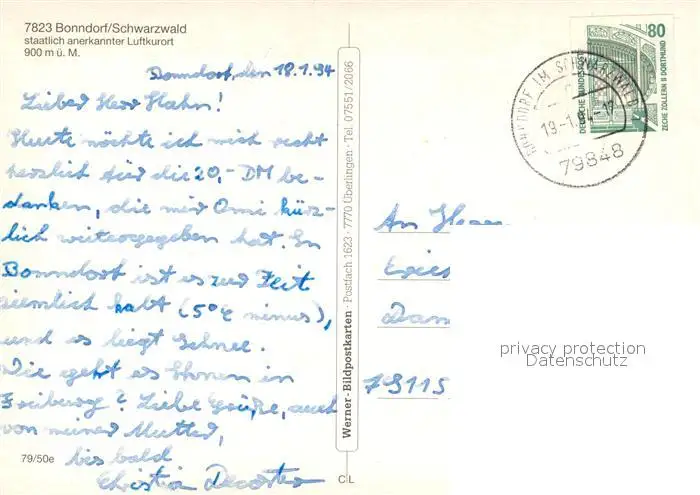 7823 Bonndorf/Schwarzwald
staatlich anerkannter Luftkurort
900 m ü. M.
Bonndorf, den 18.1.94
Lieber Herr Hahn!
Heute möchte ich mich recht
herzlich für die 20,- DM be-
danken, die mir Omi kürz-
lich weitergegeben hat. In
Bonndorf ist es zur Zeit
ziemlich kalt (5°C minus),
und es liegt Schnee.
Wie geht es Ihnen in
Freiburg? Liebe Grüße, auch
von meiner Mutter,
bis bald
Christia
79/50e
Werner-Bildpostkarten · Postfach 1623 · 7770 Überlingen · Tel. 07551/2066
C/L
80
DEUTSCHE BUNDESPOST
ZECHE ZOLLERN II DORTMUND
BONNDORF IM SCHWARZWALD
19-1.
79848
An Herrn
79115
privacy protection
Datenschutz